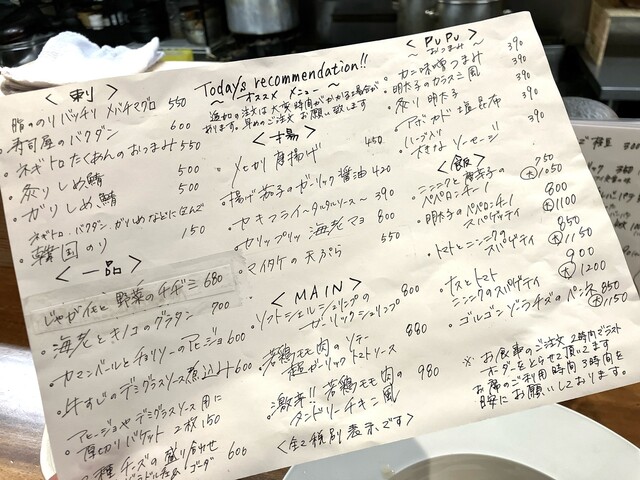 Today's recommendation!!
～オススメ メニュー～
追加の注文は大変時間がかかる場合が
あります。早めのご注文お願い致します
＜刺＞
脂ののりバッチリ メバチマグロ 550
寿司屋のバクダン 600
ネギトロたくあんのおつまみ 550
炙りしめ鯖 500
ガリしめ鯖 500
ネギトロ・バクダン、ガリしめなどに包んで
韓国のり 150
＜一品＞
じゃがイモと野菜のチヂミ 680
海老とキノコのグラタン 700
カマンベールとチョリソーのアヒージョ 600
牛すじのデミグラスソース煮込み 600
アヒージョやデミグラスソース用に
厚切りバケット 2枚 150
3種チーズの盛り合わせ
ゴーダ 600
＜揚＞
メヒカリ唐揚げ 450
揚げ茄子のガーリック醤油 420
カキフライ～タルタルソース～ 390
プリップリッ海老マヨ 800
マイタケの天ぷら 550
＜MAIN＞
ソフトシェルシュリンプの
ガーリックシュリンプ 800
若鶏モモ肉のソテー
超ガーリックトマトソース 880
激辛!! 若鶏モモ肉の
タンドリーチキン風 980
＜全て税別表示です＞
＜PUPU＞
～おつまみ～
カニ味噌つまみ 390
明太子のクラッカー風 390
炙り明太子 390
アボカド塩昆布 390
ハーブ入り
大きなソーセージ 390
＜飯＞
ニンニクと唐辛子の
ペペロンチーノ 750
大1050
明太子のペペロンチーノ
スパゲッティ 800
大1100
トマトとニンニクの
スパゲッティ 850
大1150
ナスとトマト
ニンニクのスパゲッティ 900
大1200
ゴルゴンゾラチーズのペンネ 850
大1150
※お食事のご注文 2時間でラスト
オーダーをとらせて頂いてます
お席のご利用時間 3時間を
目安にお願いしております。